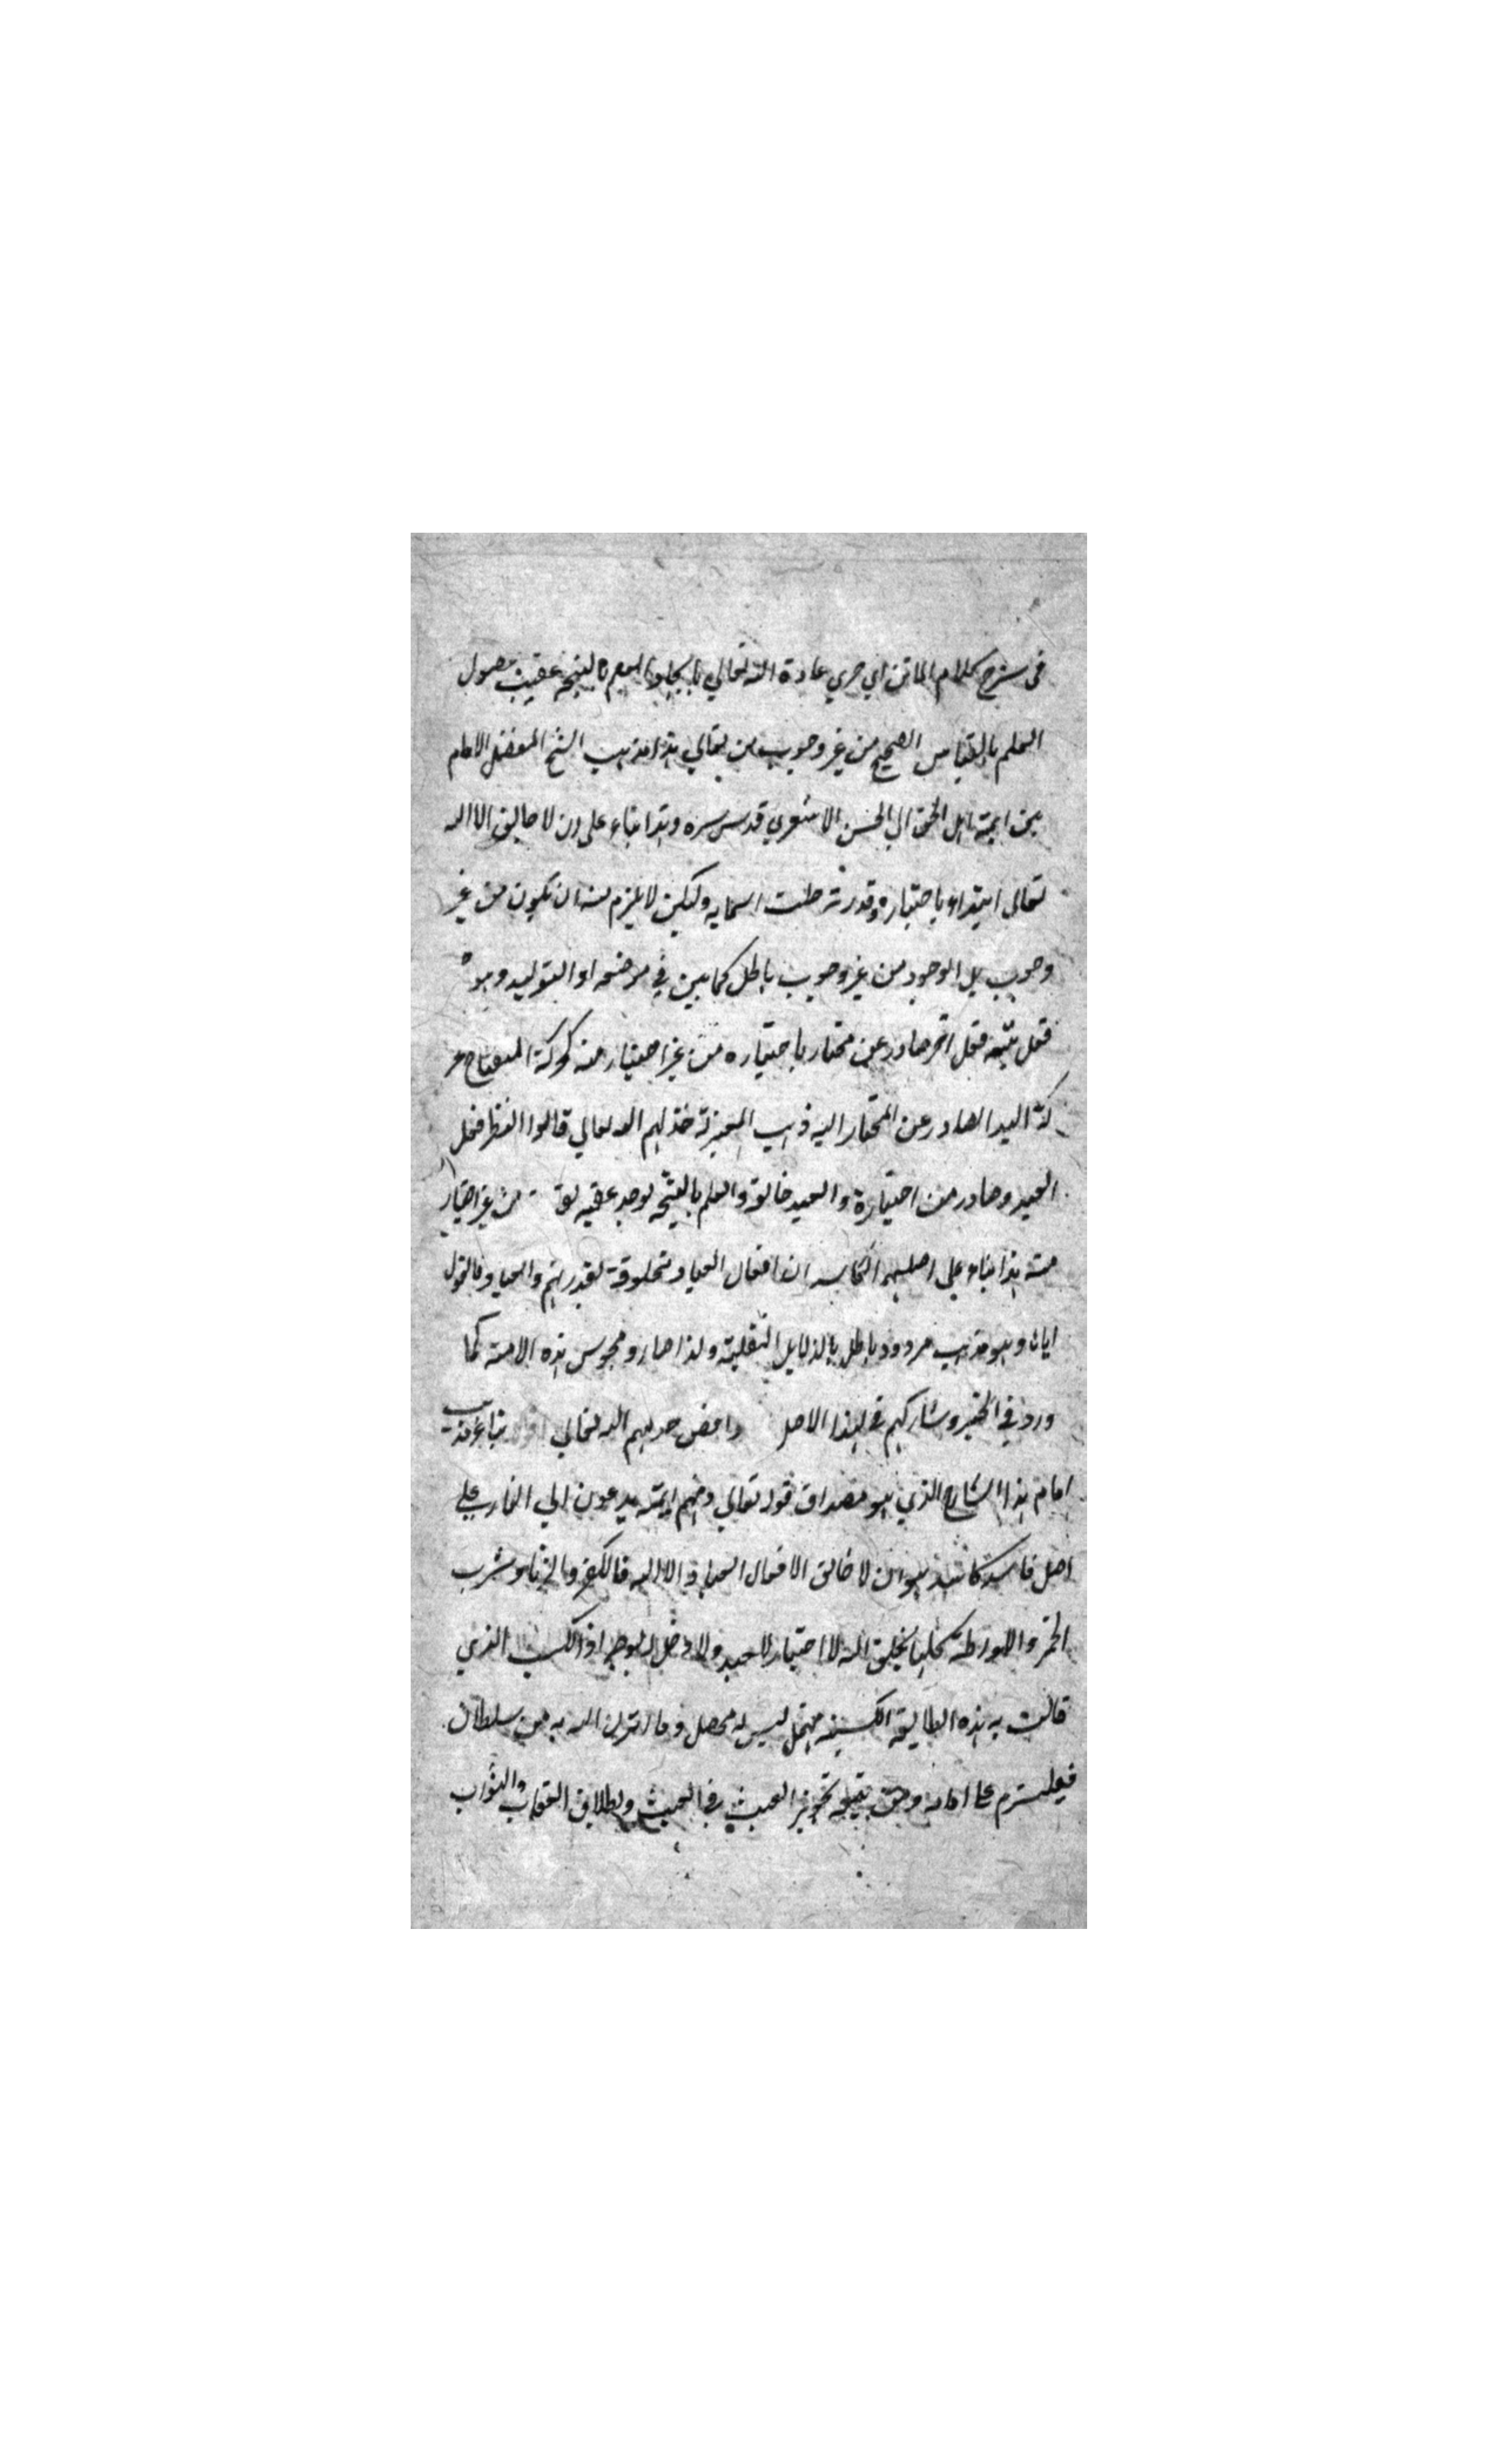 في شرح كلام الماتن اي جري عادة الله تعالي بايجاد العلم بالنتيجة عقيب حصول
العلم بالقياس الصحيح من غير وجوب من تعالي هذا مذهب الشيخ المفضل الامام
من ايمة اهل الحق ابي الحسن الاشعري قدس سره وهذا بناء على ان لا خالق الا الله
تعالى ابتداء باختياره وقدرته جلت اسمايه ولكن لا يلزم منه ان تكون من غير
وجوب بل الوجود من غير وجوب باطل كما بين في موضعه او التوليد وهو
فعل يتبعه فعل اخر صادر عن مختار باختياره من غير اختيار منه كحركة المفتاح
كة اليد الصادر عن المختار اليه ذهب المعتزلة خذلهم الله تعالي قالوا النظر فعل
العبد وصادر من اختياره والعبد خالق والعلم بالنتيجة يوجد عقيبه من غير اختيار
منه هذا بناء على اصلهم ان افعال العباد مخلوقة لقدرتهم والعباد خالقون
اياها وهو مذهب مردود باطل بالدلايل النقلية ولذا صاروا مجوس هذه الامة كما
ورد في الخبر وشاركهم في هذا الاصل خذلهم الله تعالي
امام هذا الشارح الذي هو مصداق قوله تعالي ومنهم ايمة يدعون الي النار علي
اصل فاسد كاسد هو ان لا خالق الافعال العباد الا الله فالكفر والزنا وشرب
الخمر واللواطة كلها بخلق الله لا اختيار للعبد ولا دخل له بوجه اذ الكسب الذي
قالت به هذه الطايفة مهمل ليس له محصل وما انزل الله به من سلطان
فيلتزم على امامه تجويز العبث في البعث وبطلان العقاب والثواب